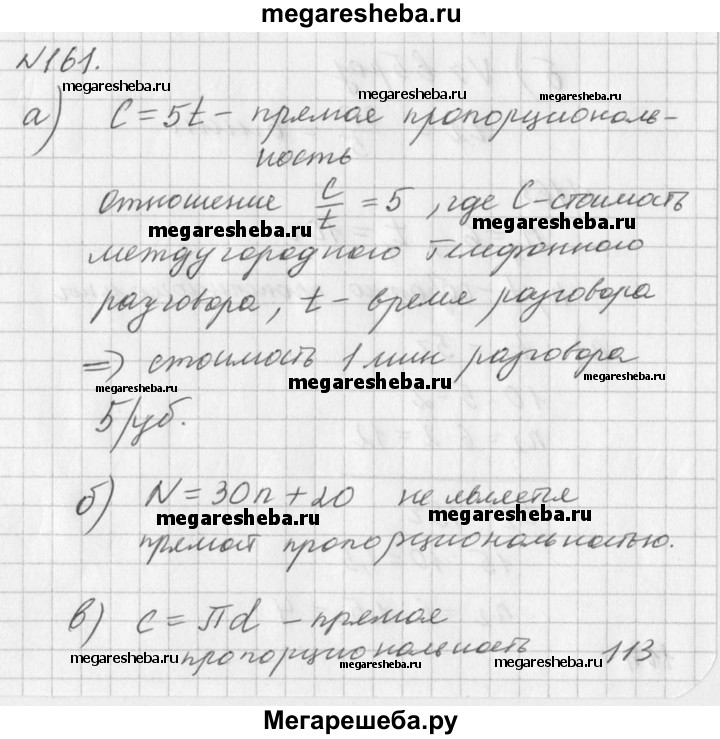 megaresheba.ru
№161.
megaresheba.ru
megaresheba.ru
megaresheba.ru
а) C = 5t – прямая пропорциональ-
ность
Отношение C/t = 5, где C – стоимость
megaresheba.ru
megaresheba.ru
междугородного телефонного
разговора, t – время разговора
=> стоимость 1 мин разговора
megaresheba.ru
megaresheba.ru
megaresheba.ru
5 руб.
б) N = 30n + 20 не является
megaresheba.ru
megaresheba.ru
прямой пропорциональностью.
в) c = πd – прямая
пропорциональность
megaresheba.ru
megaresheba.ru
megaresheba.ru
113
Мегарешеба.ру